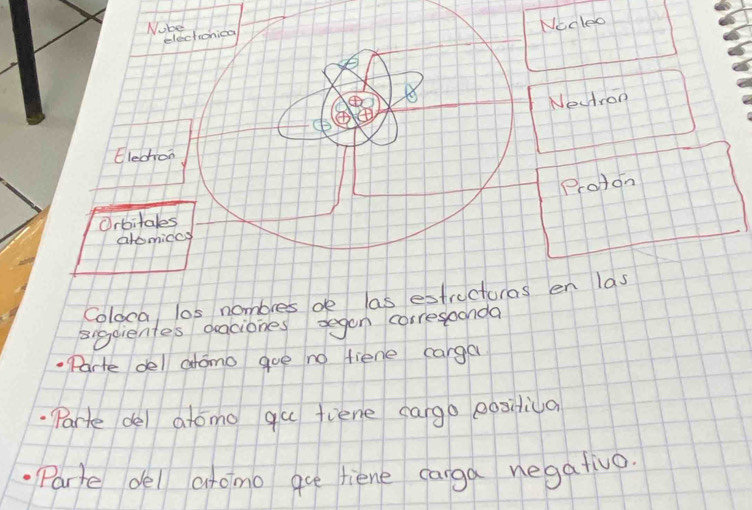 Nube
electronica
Nucleo
Neutron
Electron
Protón
Orbitales
atomicos
Coloca, los nombres de las estructuras en las
siguientes oraciones segun corresponda
•Parte del atómo que no tiene carga
•Parte del atómo que tiene carga positiva
•Parte del atómo que tiene carga negativa.